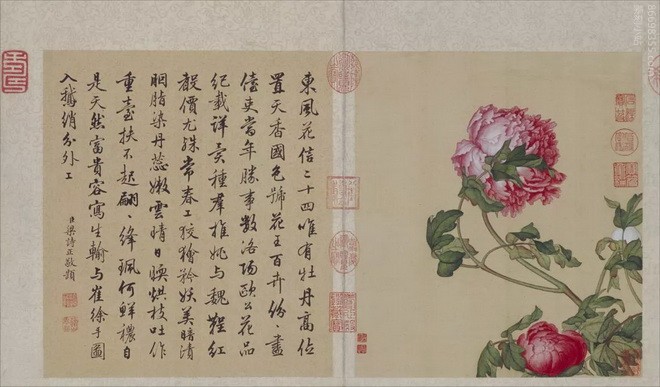 東風花信二十四唯有牡丹高位
置天香國色號花王百卉份〻盡
吏當年勝事數洛陽歐公花品
紀載詳異種群推姚與魏鞓紅
價尤殊常春工狡獪矜妖美暗漬
胭脂染丹蕊嫩雲晴日暎烘枝吐作
重臺扶不起翩〻絳珮何鮮穠自
是天然富貴容寫生輸與崔徐手圖
入鵝綃分外工
臣梁詩正敬題